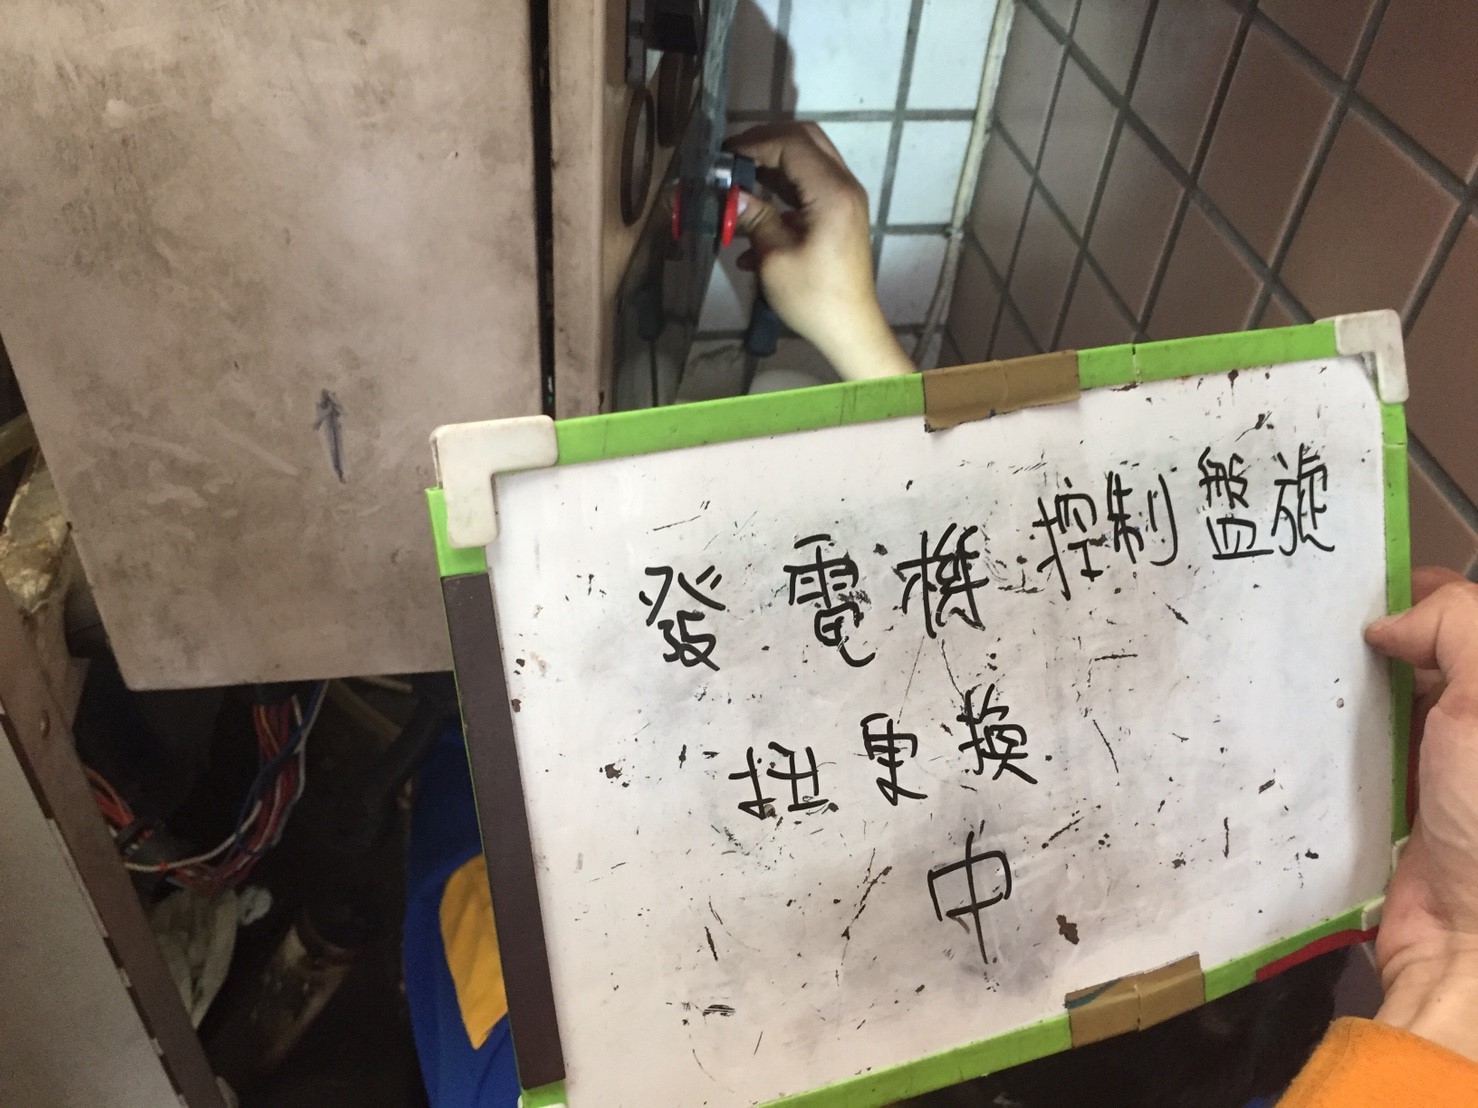 發電機控制盤旋
扭更換
中